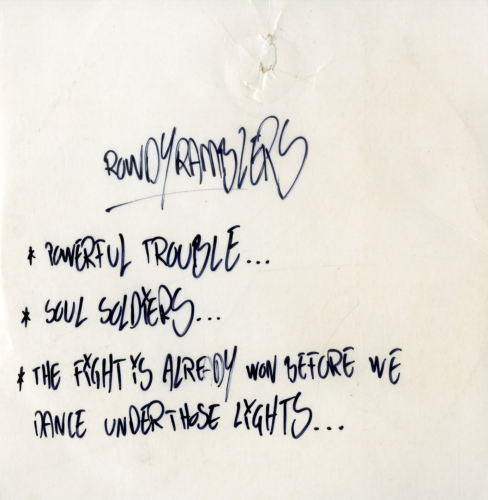 ROWDY RAMBLERS
* POWERFUL TROUBLE...
* SOUL SOLDIERS...
* THE FIGHT IS ALREADY WON BEFORE WE
DANCE UNDER THOSE LIGHTS...